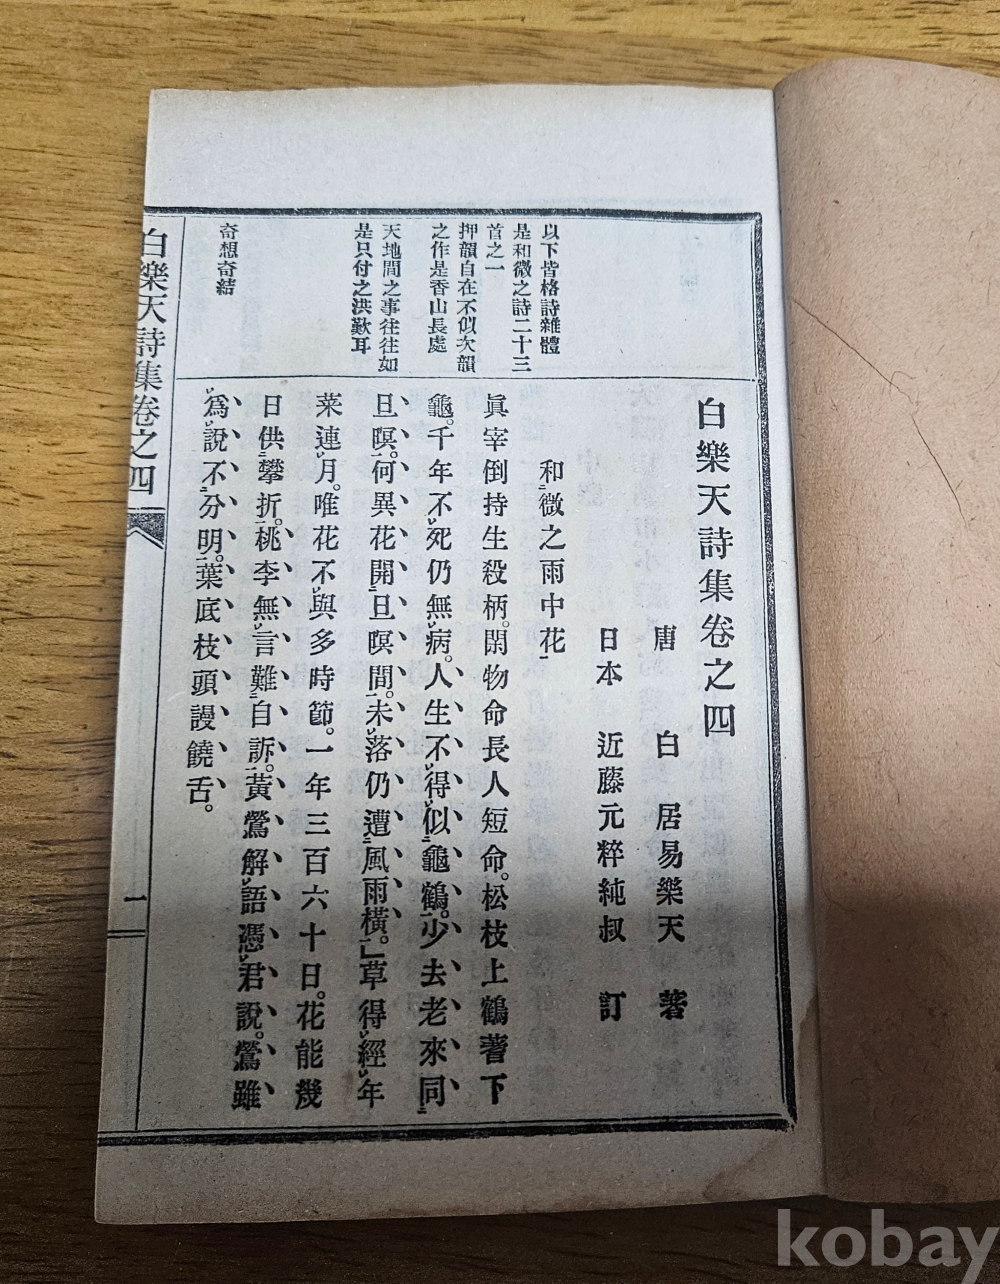 白樂天詩集卷之四
唐 白 居易樂天 著
日本 近藤元粹純叔 訂
和二微之雨中花一
眞宰倒持生殺柄。閑物命長人短命。松枝上鶴蓍下
龜。千年不レ死仍無レ病。人生不レ得レ似二龜鶴一。少去老來同二
旦暝一。何異花開旦暝間。未レ落仍遭二風雨橫一。」草得レ經レ年
菜連レ月。唯花不レ與多時節。一年三百六十日。花能幾
日供二攀折一。桃李無レ言難二自訴一。黃鶯解レ語憑レ君說。鶯雖
爲レ說不二分明一。葉底枝頭謾饒舌。
以下皆格詩雜體
是和微之詩二十三
首之一
押韻自在不似次韻
之作是香山長處
天地間之事往往如
是只付之洪歎耳
奇想奇結
白樂天詩集卷之四
一
kobay